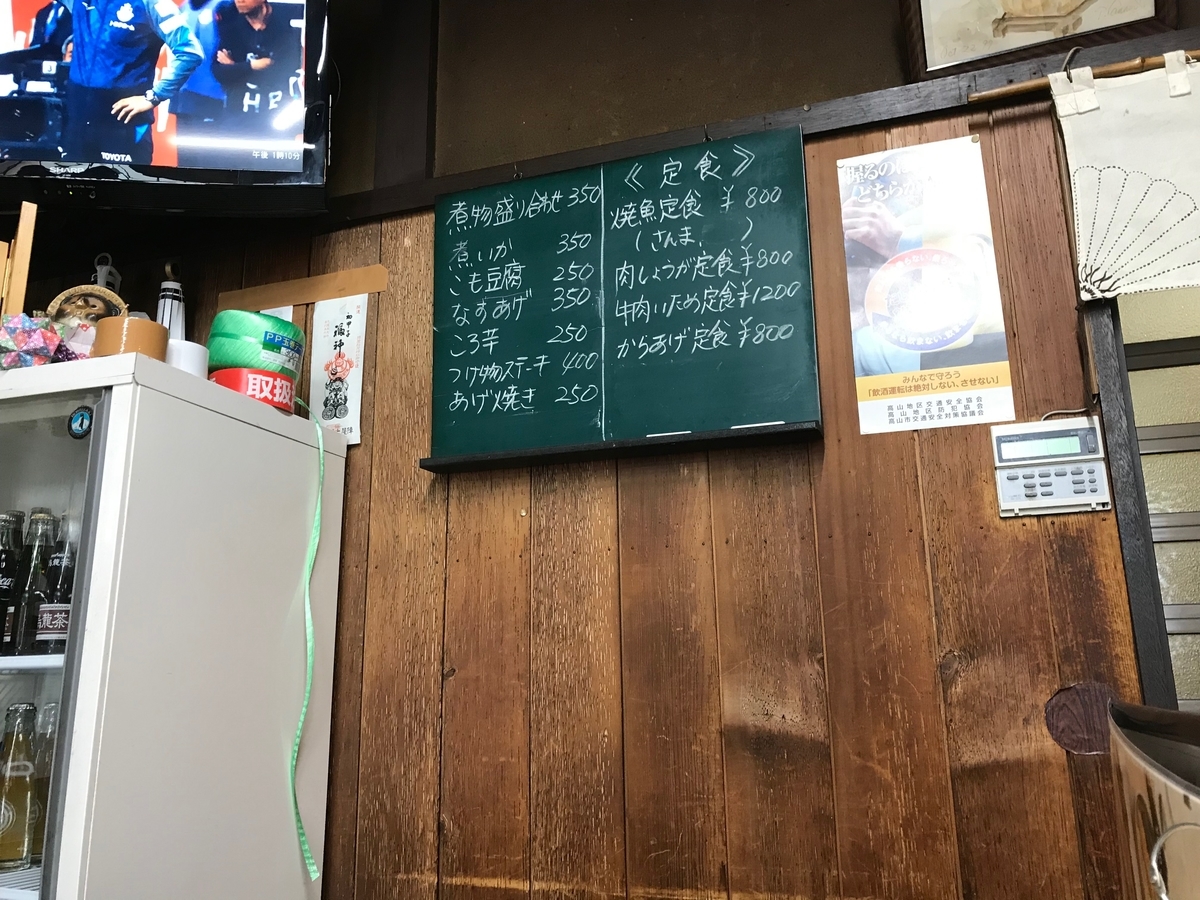 TOYOTA
午後 1時10分
SHARP
煮物盛り合わせ 350
煮いか 350
こも豆腐 250
なすあげ 350
ころ芋 250
つけ物ステーキ 400
あげ焼き 250
《定食》
焼魚定食 ¥800
(さんま、 )
肉しょうが定食 ¥800
牛肉いため定食 ¥1200
からあげ定食 ¥800
みんなで守ろう
「飲酒運転は絶対しない、させない」
高山地区交通安全協会
高山地区防犯協会
高山市交通安全対策協議会
取扱
烏龍茶